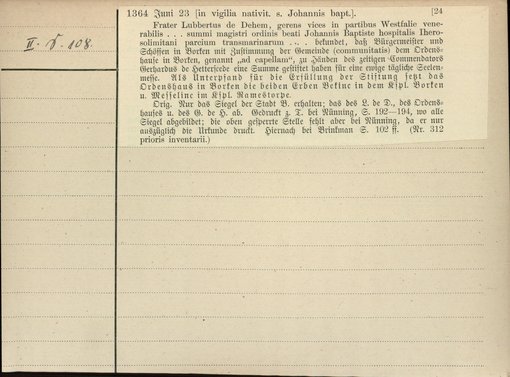 II. 8. 108.
1364 Juni 23 [in vigilia nativit. s. Johannis bapt.]. [24
Frater Lubbertus de Dehem, gerens vices in partibus Westfalie vene-
rabilis . . . summi magistri ordinis beati Johannis Baptiste hospitalis Ihero-
solimitani pareium transmarinarum . . . bekundet, daß Bürgermeister und
Schöffen in Borken mit Zustimmung der Gemeinde (communitatis) dem Ordens-
hause in Borken, genannt „ad capellam“, zu Händen des zeitigen Commendators
Gerhardus de Hetterscede eine Summe gestiftet haben für eine ewige tägliche Seelen-
messe. Als Unterpfand für die Erfüllung der Stiftung setzt das
Ordenshaus in Borken die beiden Erben Bekinc in dem Kspl. Borken
u. Messelinc im Kspl. Ramestorpe.
Orig. Nur das Siegel der Stadt B. erhalten; das des L. de D., des Ordens-
hauses u. des G. de H. ab. Gedruckt z. T. bei Nünning, S. 192—194, wo alle
Siegel abgebildet; die oben gesperrte Stelle fehlt aber bei Nünning, da er nur
auszüglich die Urkunde druckt. Hiernach bei Brinkman S. 102 ff. (Nr. 312
prioris inventarii.)